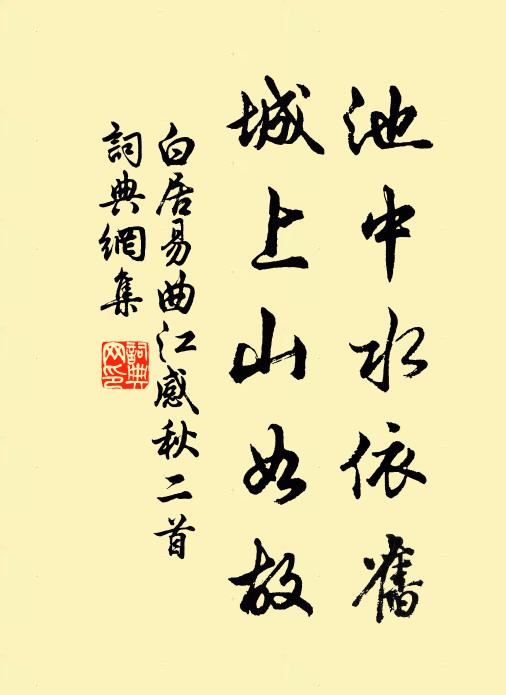 池中水依舊
城上山如故
白居易曲江感秋二首
詞典網集
詞典
网印